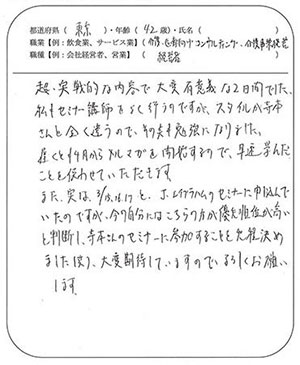 都道府県( 東京 )・年齢( 42 歳)・氏名(
職業【例:飲食業、サービス業】( 介護、医療向けコンサルティング、介護事業経営
職種【例:会社経営者、営業】( 経営者
超・実戦的な内容で大変有意義な2日間でした。
私もセミナー講師をよく行うのですが、スタイルが寺本
さんと全く違うので、その点も勉強になりました。
遅くとも4月からメルマガを開始するので、早速学んだ
ことを使わせていただきます。
また、実は、3/15.16.17と、J.エイブラハムのセミナーに申込んで
いたのですが、今の自分にはこちらの方が優先順位が高い
と判断し、寺本さんのセミナーに参加することを先程決め
ました(笑)、大変期待していますのでよろしくお願い
します。